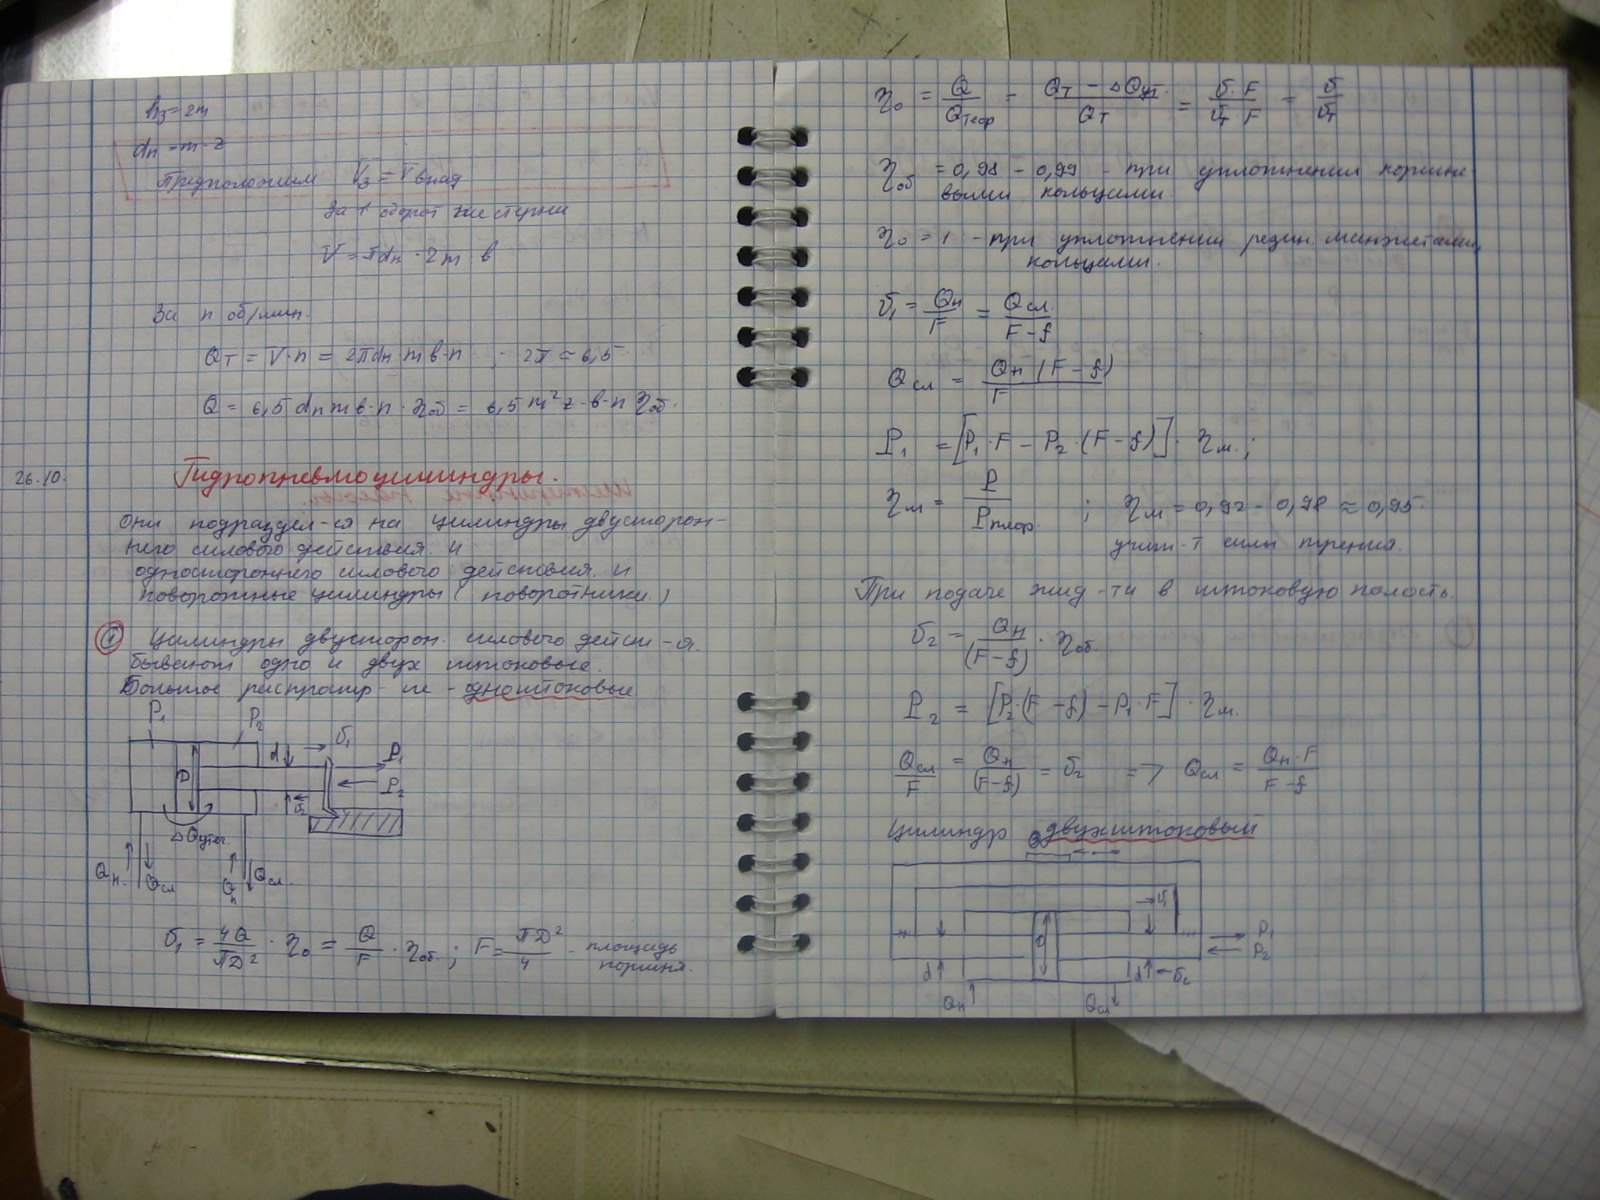 h₃ = 2m
dн = m·z
Предположим V₃ = Vвпад
За 1 оборот шестерни
V = πdн · 2m · в
За n об/мин.
Qт = V·n = 2πdн m в·n ; 2π ≈ 6,5
Q = 6,5 dн m в·n · ηоб = 6,5 m² z·в·n ηоб.
26.10. Гидропневмоцилиндры.
Они подраздел-ся на цилиндры двусторон-
него силового действия и
одностороннего силового действия и
поворотные цилиндры (поворотники)
① Цилиндры двусторон. силового дейст-я.
бывают одно и двух штоковые.
Большое распростр-ие - одноштоковые
P₁ P₂ d υ₁ P₁
D P₂
υ₂
ΔQутеч.
Qн. Qсл Qн Qсл.
υ₁ = 4Q/πD² · η₀ = Q/F · ηоб. ; F = πD²/4 - площадь
поршня.
η₀ = Q/Qтеор = (Qт - ΔQут.)/Qт = υ·F/υт·F = υ/υт
ηоб = 0,98 - 0,99 - при уплотнении поршне-
выми кольцами.
η₀ = 1 - при уплотнении резин. манжетами,
кольцами.
υ₁ = Qн/F = Qсл./(F-f)
Qсл = Qн (F-f)/F
P₁ = [P₁·F - P₂·(F-f)] · ηм. ;
ηм = P/Pтеор. ; ηм = 0,92 - 0,98 ≈ 0,95.
учит-т силы трения.
При подаче жид-ти в штоковую полость.
υ₂ = Qн/(F-f) · ηоб.
P₂ = [P₂·(F-f) - P₁·F] · ηм.
Qсл/F = Qн/(F-f) = υ₂ => Qсл = Qн·F/(F-f)
Цилиндр двухштоковый
υ₁
D P₁
P₂
d d υ₂
Qн Qсл